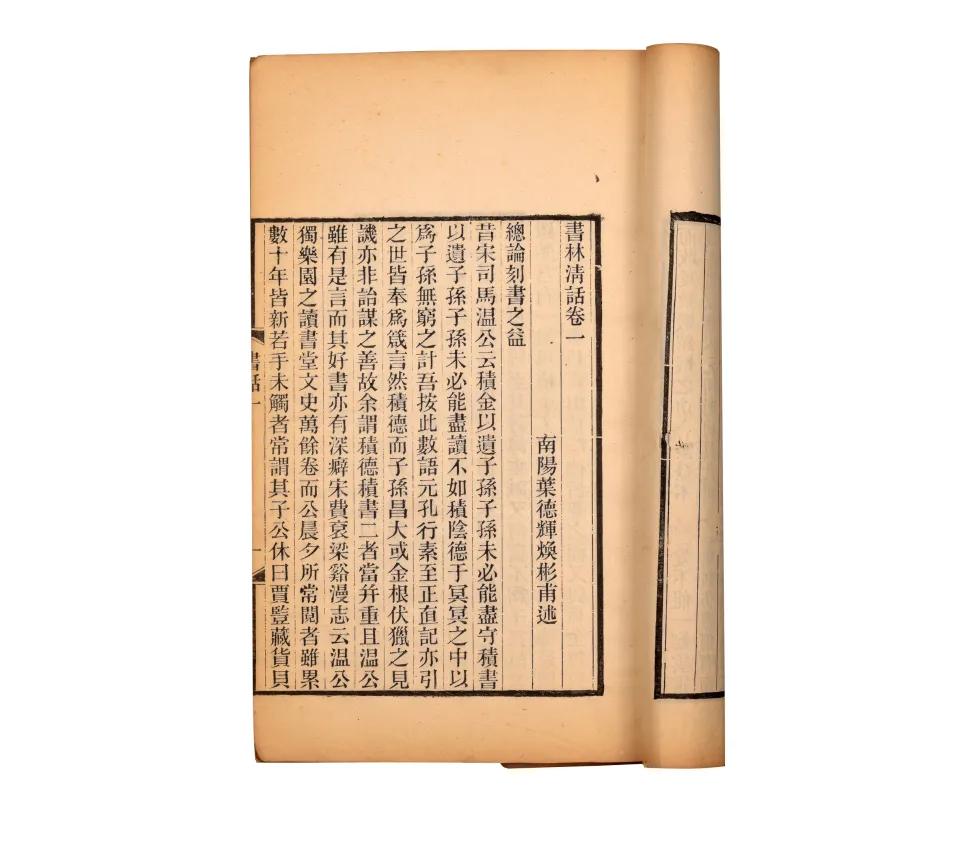 書林清話卷一
南陽葉德輝煥彬甫述
總論刻書之益
昔宋司馬温公云積金以遺子孫子孫未必能盡守積書
以遺子孫子孫未必能盡讀不如積陰德于冥冥之中以
爲子孫無窮之計吾按此數語元孔行素至正直記亦引
之世皆奉爲箴言然積德而子孫昌大或金根伏獵之見
譏亦非詒謀之善故余謂積德積書二者當并重且温公
雖有是言而其好書亦有深癖宋費袞梁谿漫志云温公
獨樂園之讀書堂文史萬餘卷而公晨夕所常閱者雖累
數十年皆新若手未觸者常謂其子公休曰賈豎藏貨貝
書話一